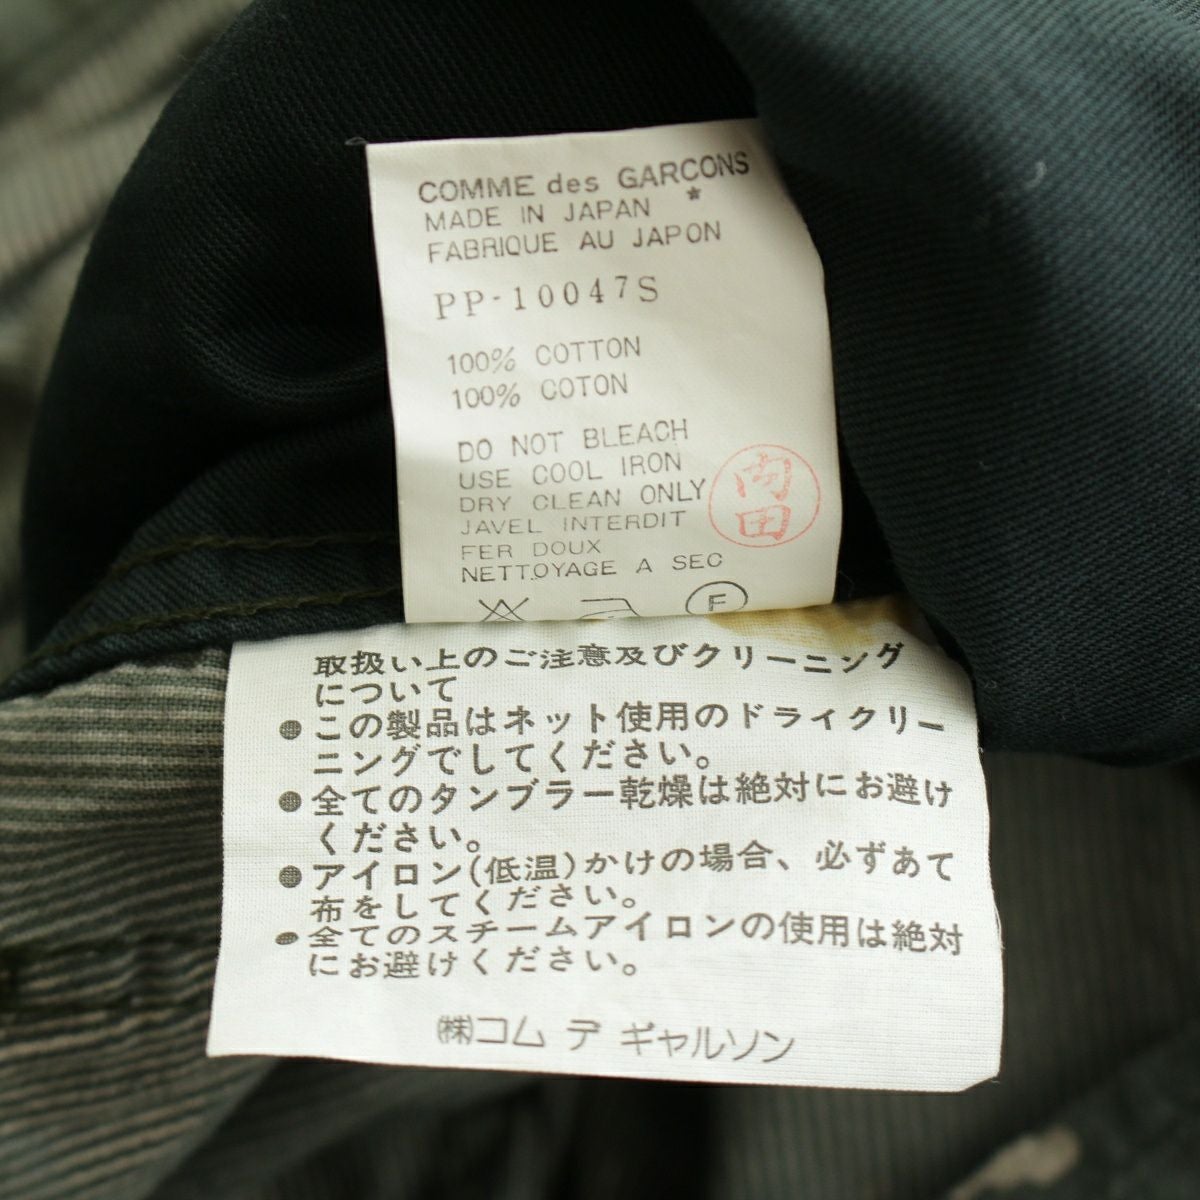 COMME des GARCONS
MADE IN JAPAN *
FABRIQUE AU JAPON
PP-10047S
100% COTTON
100% COTON
DO NOT BLEACH
USE COOL IRON
DRY CLEAN ONLY
JAVEL INTERDIT
FER DOUX
NETTOYAGE A SEC
内田
F
取扱い上のご注意及びクリーニング
について
●この製品はネット使用のドライクリー
ニングでしてください。
●全てのタンブラー乾燥は絶対にお避け
ください。
●アイロン(低温)かけの場合、必ずあて
布をしてください。
●全てのスチームアイロンの使用は絶対
にお避けください。
㈱コム デ ギャルソン